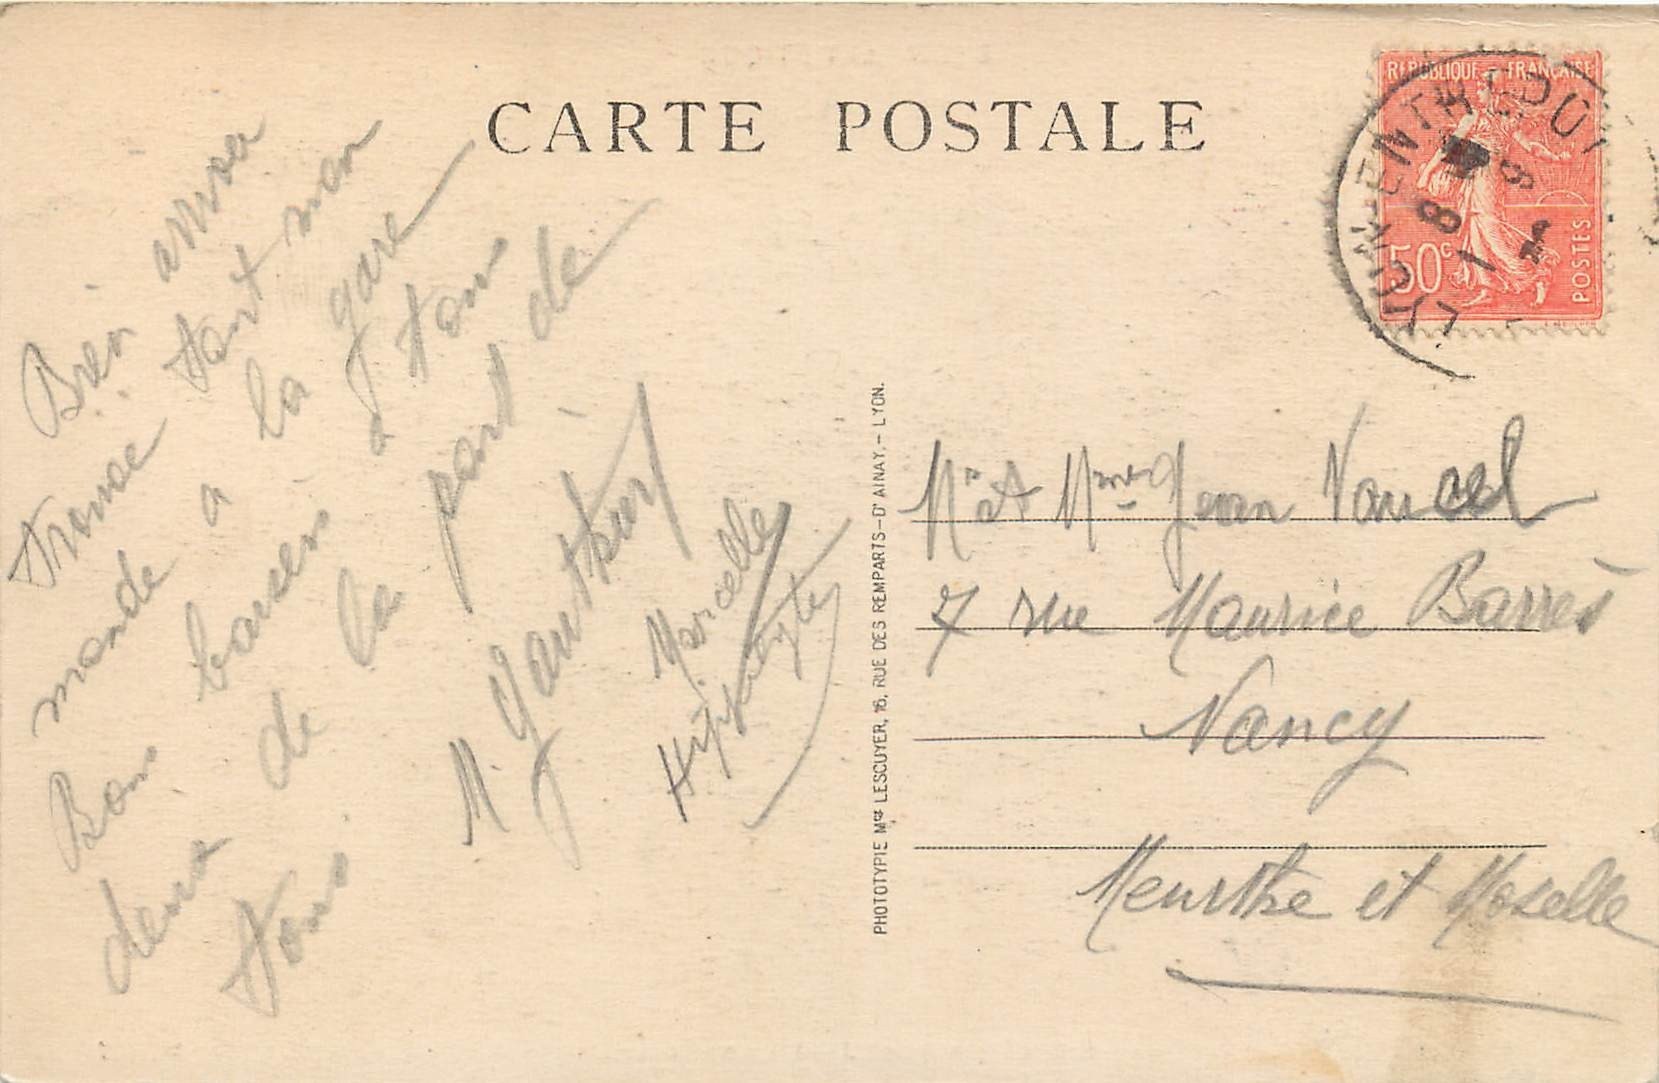 CARTE POSTALE
REPUBLIQUE FRANÇAISE
50c
POSTES
Bien arrivé
trouvé tout mon
monde a la gare
Bons baisers a tous
deux de la part de
tous.
M. Gauthier
Marcelle
Hippolyte
PHOTOTYPIE Mce LESCUYER, 16, RUE DES REMPARTS-D'AINAY. - LYON.
Mr et Mme Jean
7 rue Maurice Barrès
Nancy
Meurthe et Moselle